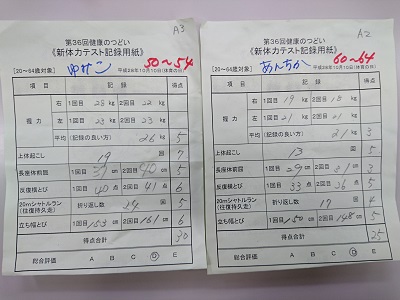 A3
第36回健康のつどい
《新体力テスト記録用紙》
50~54
【20~64歳対象】 ゆサン 平成28年10月10日(体育の日)
項目 記録 得点
握力 右 1回目 28 kg 2回目 22 kg
左 1回目 23 kg 2回目 23 kg
平均 (記録の良い方) 26 kg 5
上体起こし 19 回 7
長座体前屈 1回目 39 cm 2回目 40 cm 5
反復横とび 1回目 40 点 2回目 41 点 6
20mシャトルラン(往復持久走) 折り返し数 24 回 5
立ち幅とび 1回目 153 cm 2回目 161 cm 6
得点合計 30
総合評価 A B C D E
A2
第36回健康のつどい
《新体力テスト記録用紙》
60~64
【20~64歳対象】 あんちか 平成28年10月10日(体育の日)
項目 記録 得点
握力 右 1回目 19 kg 2回目 18 kg
左 1回目 21 kg 2回目 21 kg
平均 (記録の良い方) 21 kg 3
上体起こし 13 回 5
長座体前屈 1回目 29 cm 2回目 31 cm 3
反復横とび 1回目 33 点 2回目 36 点 5
20mシャトルラン(往復持久走) 折り返し数 17 回 4
立ち幅とび 1回目 150 cm 2回目 148 cm 5
得点合計 25
総合評価 A B C D E